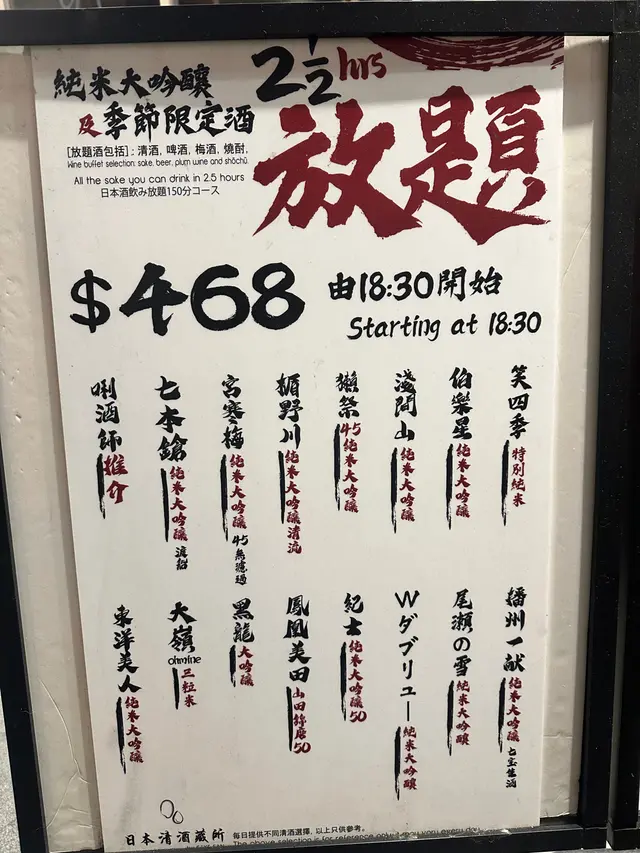 2½hrs
純米大吟釀
及季節限定酒
放題
[放題酒包括]：清酒, 啤酒, 梅酒, 燒酎.
Wine buffet selection: sake, beer, plum wine and shōchū.
All the sake you can drink in 2.5 hours
日本酒飲み放題150分コース
$468
由18:30開始
Starting at 18:30
笑四季 特別純米
伯樂星 純米大吟釀
淺間山 純米大吟釀
獺祭 45純米大吟釀
楯野川 純米大吟釀清流
宮寒梅 純米大吟釀 45無濾過
七本鎗 純米大吟釀
唎酒師推介
播州一献 純米大吟釀
尾瀬の雪 純米大吟釀
Wダブリュー 純米大吟釀
紀士 純米大吟釀50
鳳凰美田 山田錦 50
黒龍 大吟釀
大嶺 ohmine 三粒米
東洋美人 純米大吟釀
日本清酒蔵所
每日提供不同清酒選擇, 以上只供參考。
The above selection is for reference only